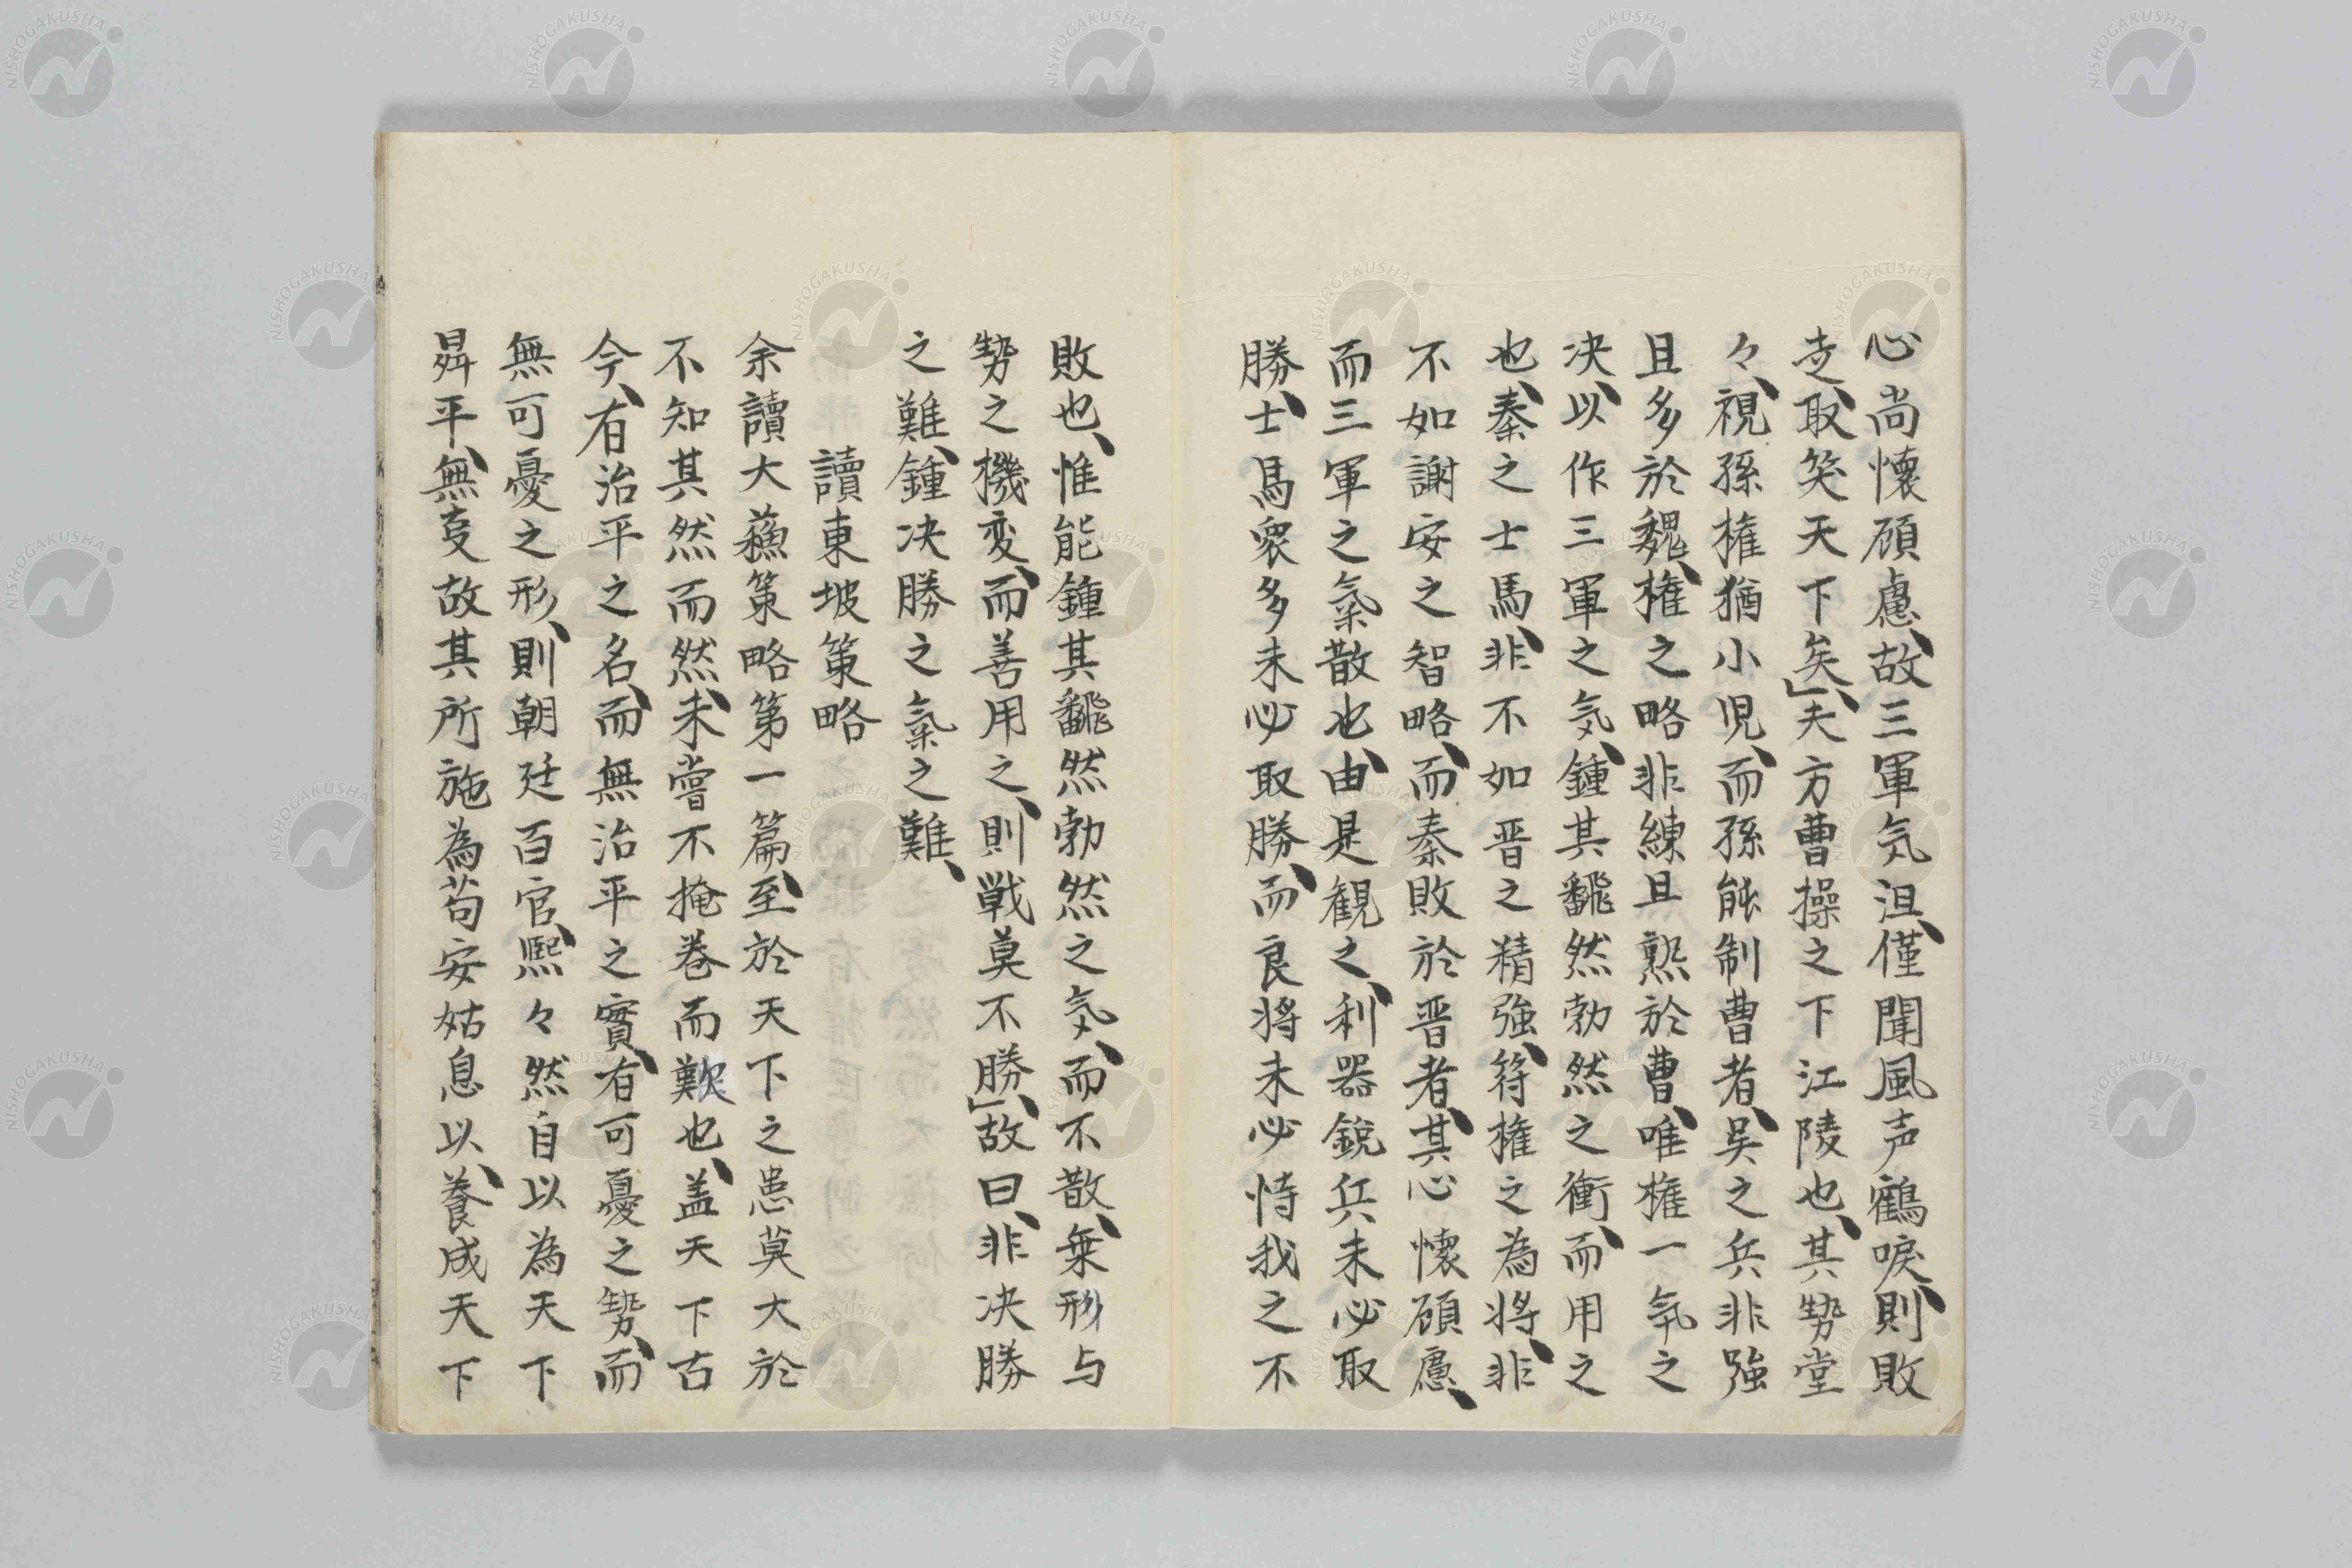 心尚懷顧慮、故三軍気沮、僅聞風声鶴唳、則敗
走、取笑天下矣」、夫方曹操之下江陵也、其勢堂
々、視孫権猶小児、而孫能制曹者、吳之兵非強
且多於魏、権之略非練且熟於曹、唯権一気之
決、以作三軍之気、鍾其飜然勃然之衝、而用之
也、秦之士馬、非不如晋之精強、苻権之為將、非
不如謝安之智略、而秦敗於晋者、其心懷顧慮、
而三軍之氣散也、由是観之、利器銳兵未必取
勝、士馬衆多未必取勝、而良将未必恃我之不
敗也、惟能鍾其飜然勃然之気、而不散、乗形与
勢之機変、而善用之、則戦莫不勝」、故曰、非决勝
之難、鍾决勝之氣之難、
讀東坡策略
余讀大蘓策略第一篇、至於天下之患莫大於
不知其然而然、未嘗不掩巻而歎也、盖天下古
今、有治平之名、而無治平之實、有可憂之勢、而
無可憂之形、則朝廷百官、熙々然自以為天下
昇平、無㕝故其所施為苟安姑息以、養成天下
NISHOGAKUSHA